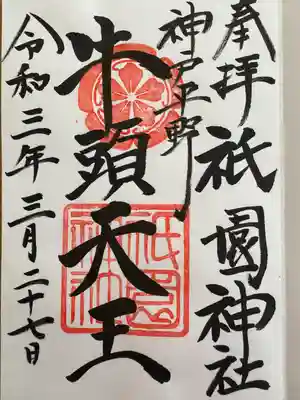 奉拝 祇園神社
神戸平野
牛頭天王
令和三年三月二十七日